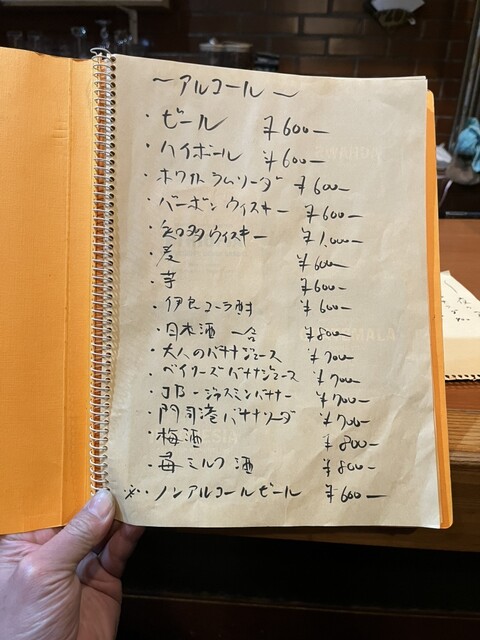 ～アルコール～
・ビール ¥600-
・ハイボール ¥600-
・ホワイトラムソーダ ¥600-
・バーボンウィスキー ¥600-
・知多ウィスキー ¥1,000-
・麦 ¥600-
・芋 ¥600-
・伊良コーラ酎 ¥600-
・日本酒 一合 ¥800-
・大人のバナナジュース ¥700-
・ベイリーズバナナジュース ¥700-
・JB-ジャスミンバナナー ¥700-
・門司港バナナソーダ ¥700-
・梅酒 ¥800-
・苺ミルク酒 ¥800-
※・ノンアルコールビール ¥600-